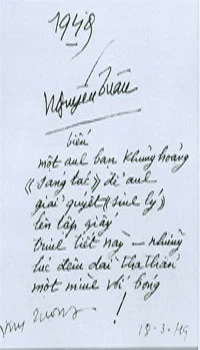 1948
Nguyễn Tuân
biếu
một anh bạn khủng hoảng
《sáng tác》 để anh
giải quyết 《sinh lý》
lên tập giấy
trinh tiết này – những
lúc đêm dài thơ thẩn
một mình với bóng
!
18-3-49